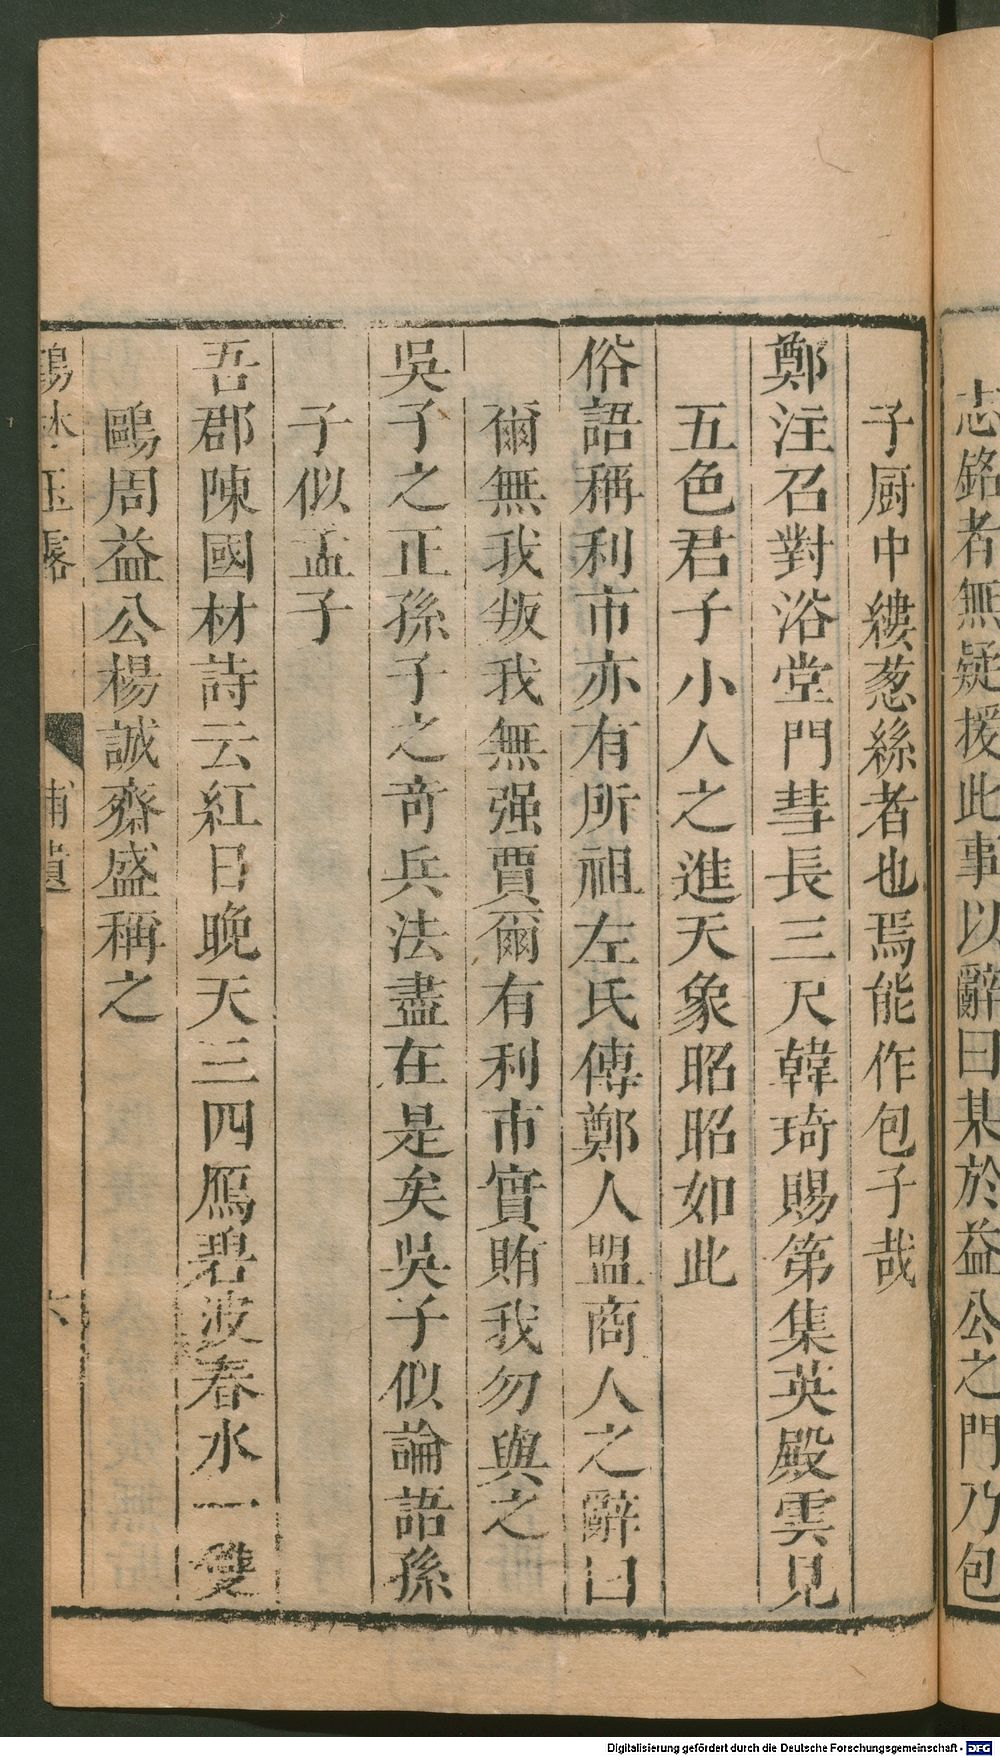 志銘者無疑援此事以辭曰某於益公之門乃包
子厨中縷葱絲者也焉能作包子哉
鄭注召對浴堂門彗長三尺韓琦賜第集英殿雲見
五色君子小人之進天象昭昭如此
俗語稱利市亦有所祖左氏傳鄭人盟商人之辭曰
爾無我叛我無强賈爾有利市實賄我勿與之
吳子之正孫子之奇兵法盡在是矣吳子似論語孫
子似孟子
吾郡陳國材詩云紅日晚天三四鴈碧波春水一雙
鷗周益公楊誠齋盛稱之
鶴林玉露 補遺 六
Digitalisierung gefördert durch die Deutsche Forschungsgemeinschaft - DFG